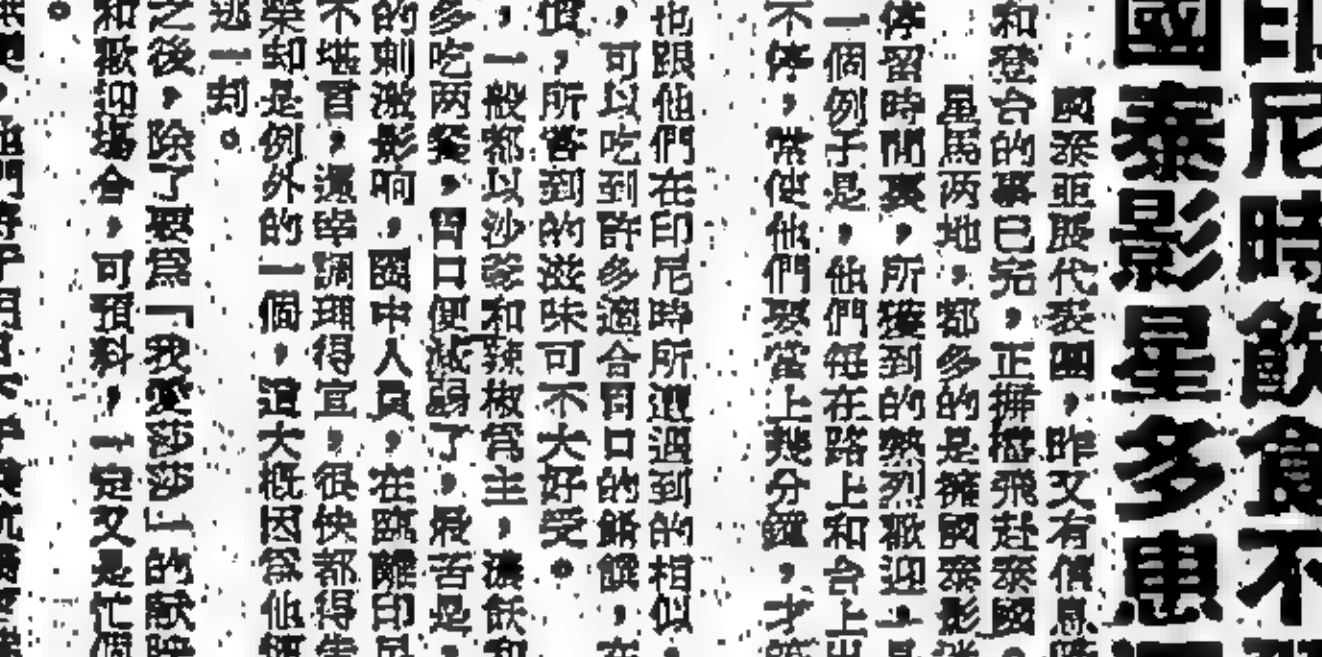 印尼時飲食不
國泰影星多患
國泰亚展代表團，昨又有信息
和登台的事已完，正擠檔飛赴泰國
星馬两地，都多的是擁國泰影
停留時間裏，所獲到的熱烈歡迎，是
一個例子是，他們每在路上和台上出
不停，常使他們要當上幾分鐘，才
也跟他們在印尼時所遭遇到的相似
，可以吃到許多適合胃口的餚饌，在
慣，所嘗到的滋味可不大好受。
，一般都以沙爹和辣椒為主，濃飲和
多吃两餐，胃口便減弱了，最苦是
的刺激影响，團中人員，在臨離印尼
不堪言，還幸調理得宜，很快都得告
榮却是例外的一個，這大概因為他個
逃一刦。
之後，除了要為「我愛莎莎」的献映
和歡迎場合，可預料，一定又是忙個